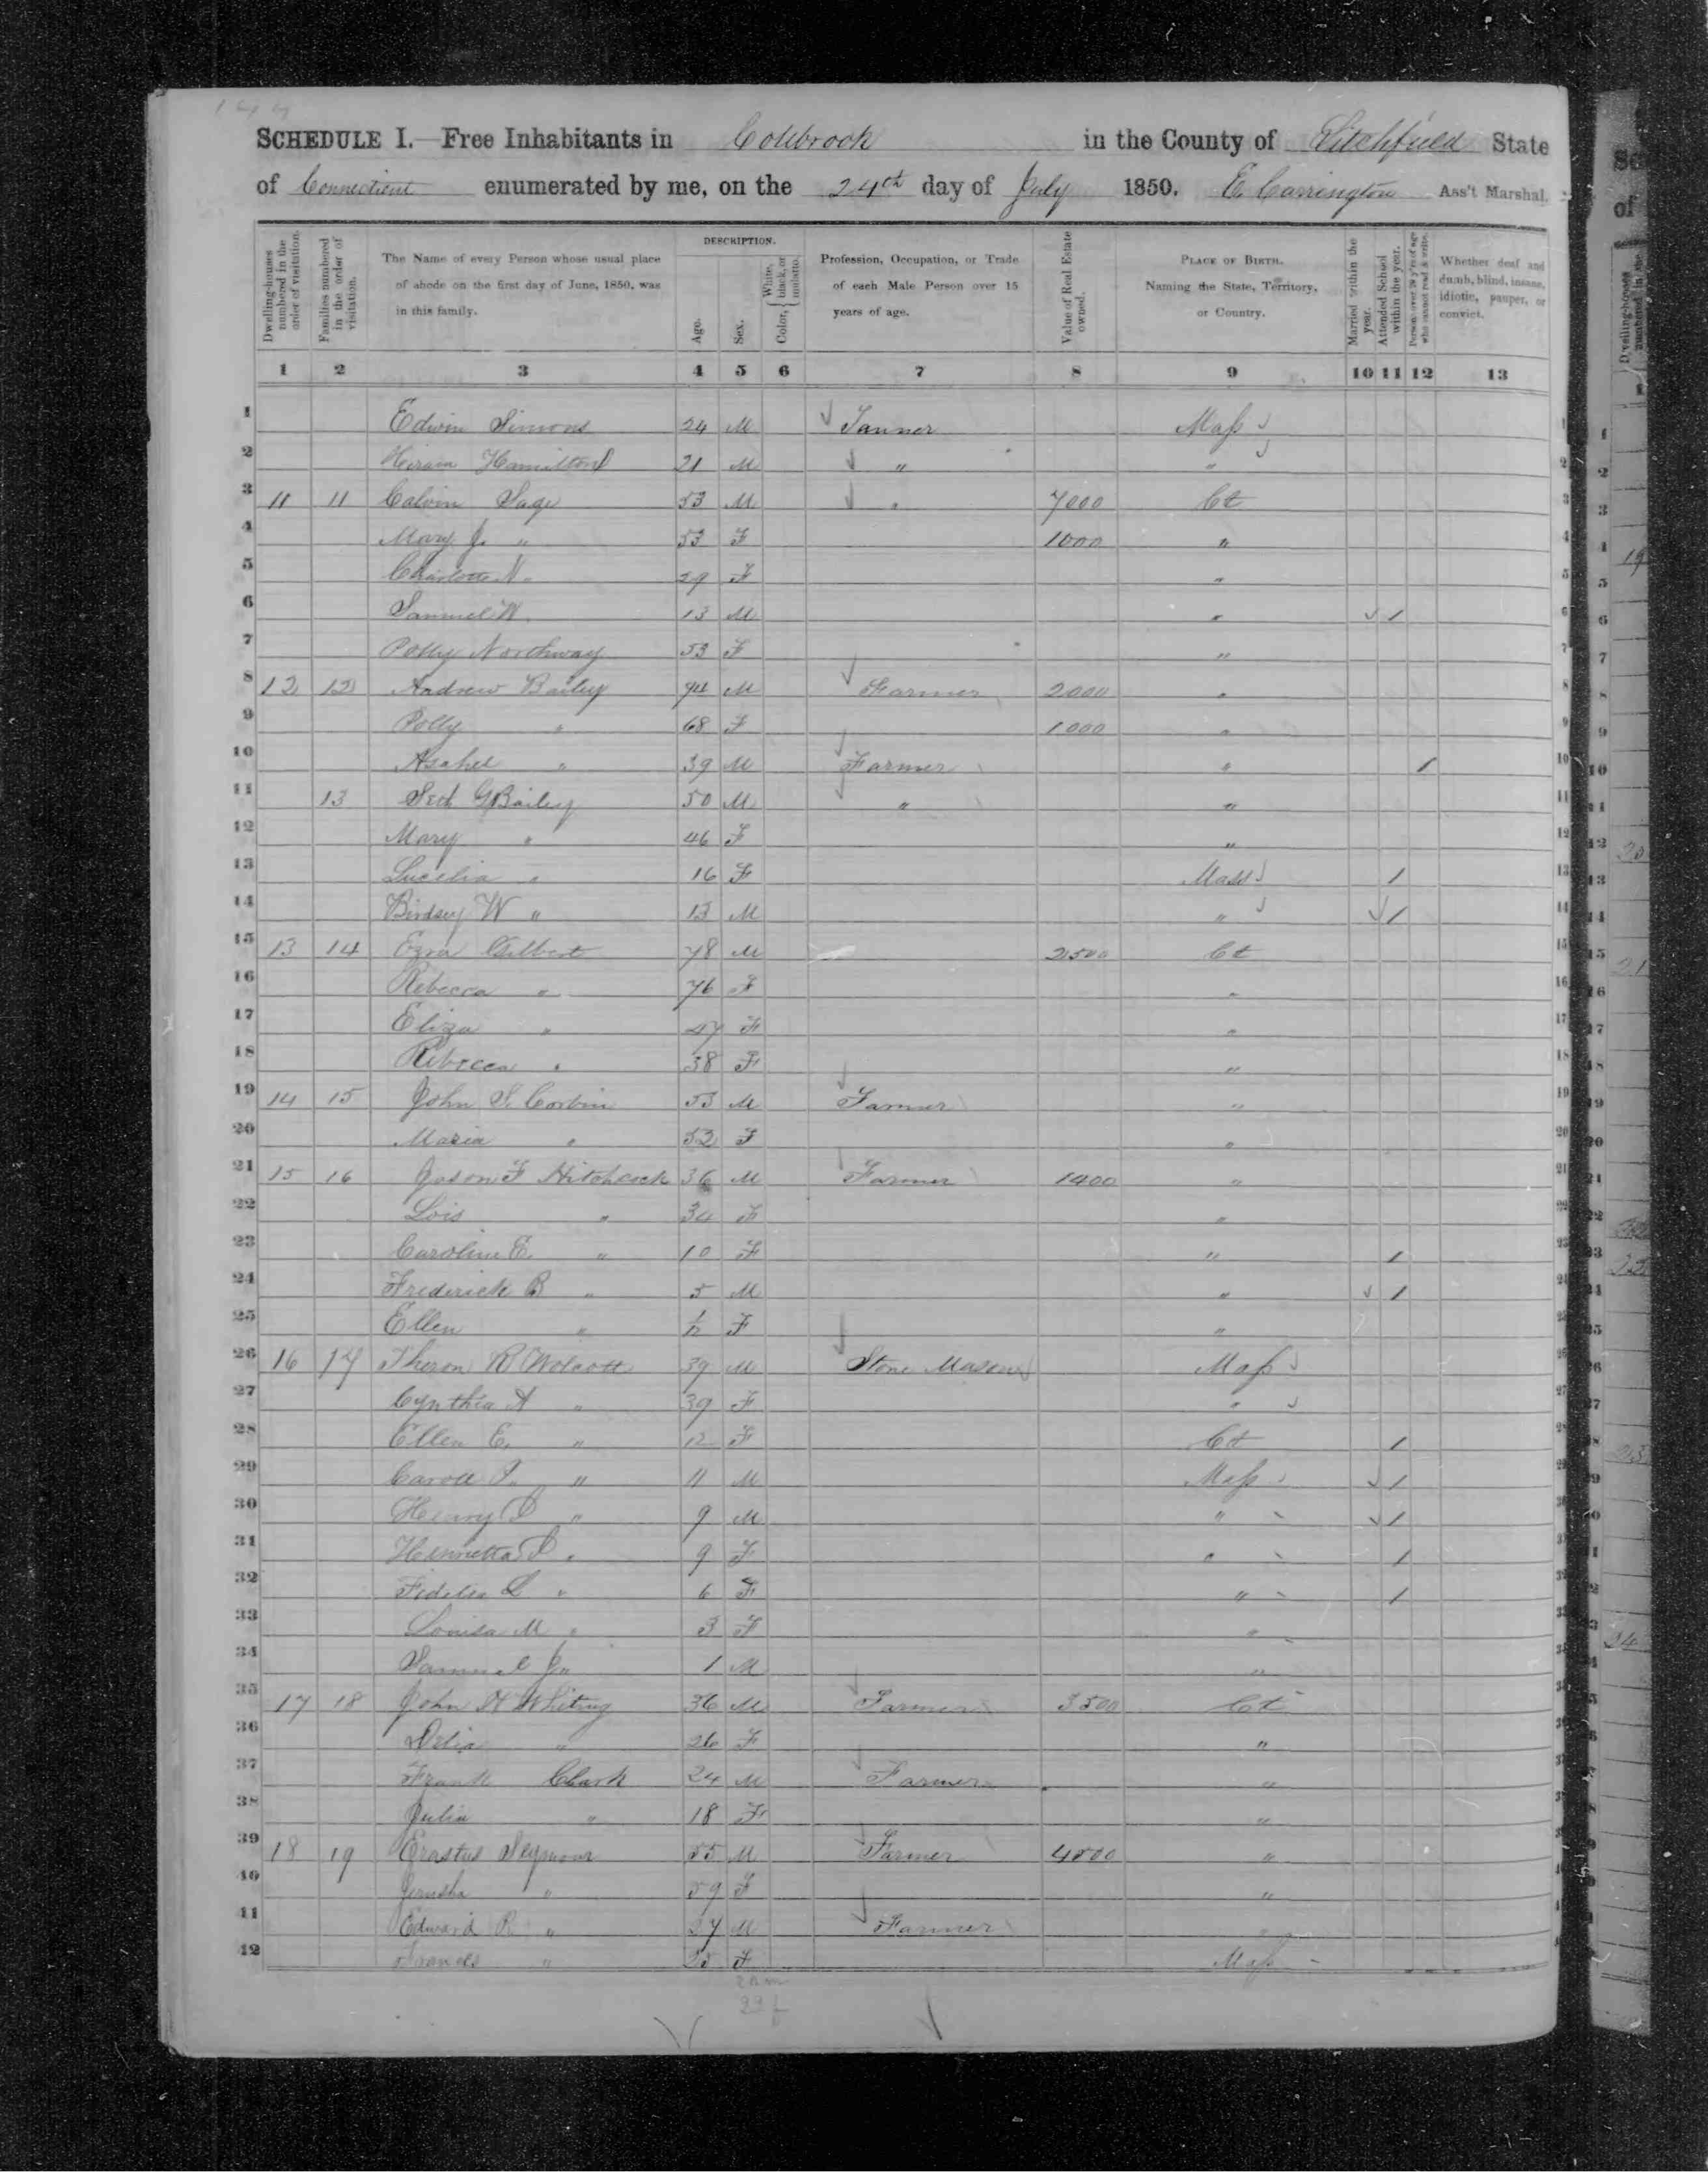 SCHEDULE I.—Free Inhabitants in Colebrook in the County of Litchfield State
of Connecticut enumerated by me, on the 24th day of July 1850. E. Carrington Ass't Marshal.
Dwelling-houses numbered in the order of visitation.
Families numbered in the order of visitation.
The Name of every Person whose usual place of abode on the first day of June, 1850, was in this family.
DESCRIPTION.
Age.
Sex.
Color, { White, black, or mulatto.
Profession, Occupation, or Trade of each Male Person over 15 years of age.
Value of Real Estate owned.
PLACE OF BIRTH. Naming the State, Territory, or Country.
Married within the year.
Attended School within the year.
Persons over 20 y'rs of age who cannot read & write.
Whether deaf and dumb, blind, insane, idiotic, pauper, or convict.
1 2 3 4 5 6 7 8 9 10 11 12 13
1 Edwin Simons 24 M Tanner Mass 1
2 Hiram Hamilton 21 M " " 2
3 11 11 Calvin Sage 53 M " 7000 Ct 3
4 Mary J. " 53 F 1000 " 4
5 Charlotte N. " 29 F " 5
6 Samuel W. 13 M " 1 6
7 Polly Northway 53 F " 7
8 12 12 Andrew Bailey 74 M Farmer 2000 " 8
9 Polly " 68 F 1000 " 9
10 Asahel " 39 M Farmer " 1 10
11 13 Seth G Bailey 50 M " " 11
12 Mary " 46 F " 12
13 Lucelia " 16 F Mass 1 13
14 Birdsey W " 13 M " 1 14
15 13 14 Ezra Gilbert 78 M 2500 Ct 15
16 Rebecca " 76 F " 16
17 Eliza " 47 F " 17
18 Rebecca " 38 F " 18
19 14 15 John S. Corbin 53 M Farmer " 19
20 Maria " 52 F " 20
21 15 16 Jason F Hitchcock 36 M Farmer 1400 " 21
22 Lois " 34 F " 22
23 Caroline E. " 10 F " 1 23
24 Frederick B " 5 M " 1 24
25 Ellen " F " 25
26 16 17 Theron R Wolcott 39 M Stone Mason Mass 26
27 Cynthia A " 39 F " 27
28 Ellen E. " 12 F Ct 1 28
29 " 11 M Mass 1 29
30 Henry " 9 M " 1 30
31 Henrietta " 9 F " 1 31
32 Fidelia L " 6 F " 1 32
33 Louisa M " 3 F " 33
34 Samuel J " 1 M " 34
35 17 18 John H Whiting 36 M Farmer 3500 Ct 35
36 Delia " 26 F " 36
37 Frank Clark 24 M Farmer " 37
38 Julia " 18 F " 38
39 18 19 Erastus Seymour 55 M Farmer 4500 "
40 Jerusha " 59 F "
41 Edward R. " 27 M Farmer "
42 Frances " 25 F Mass